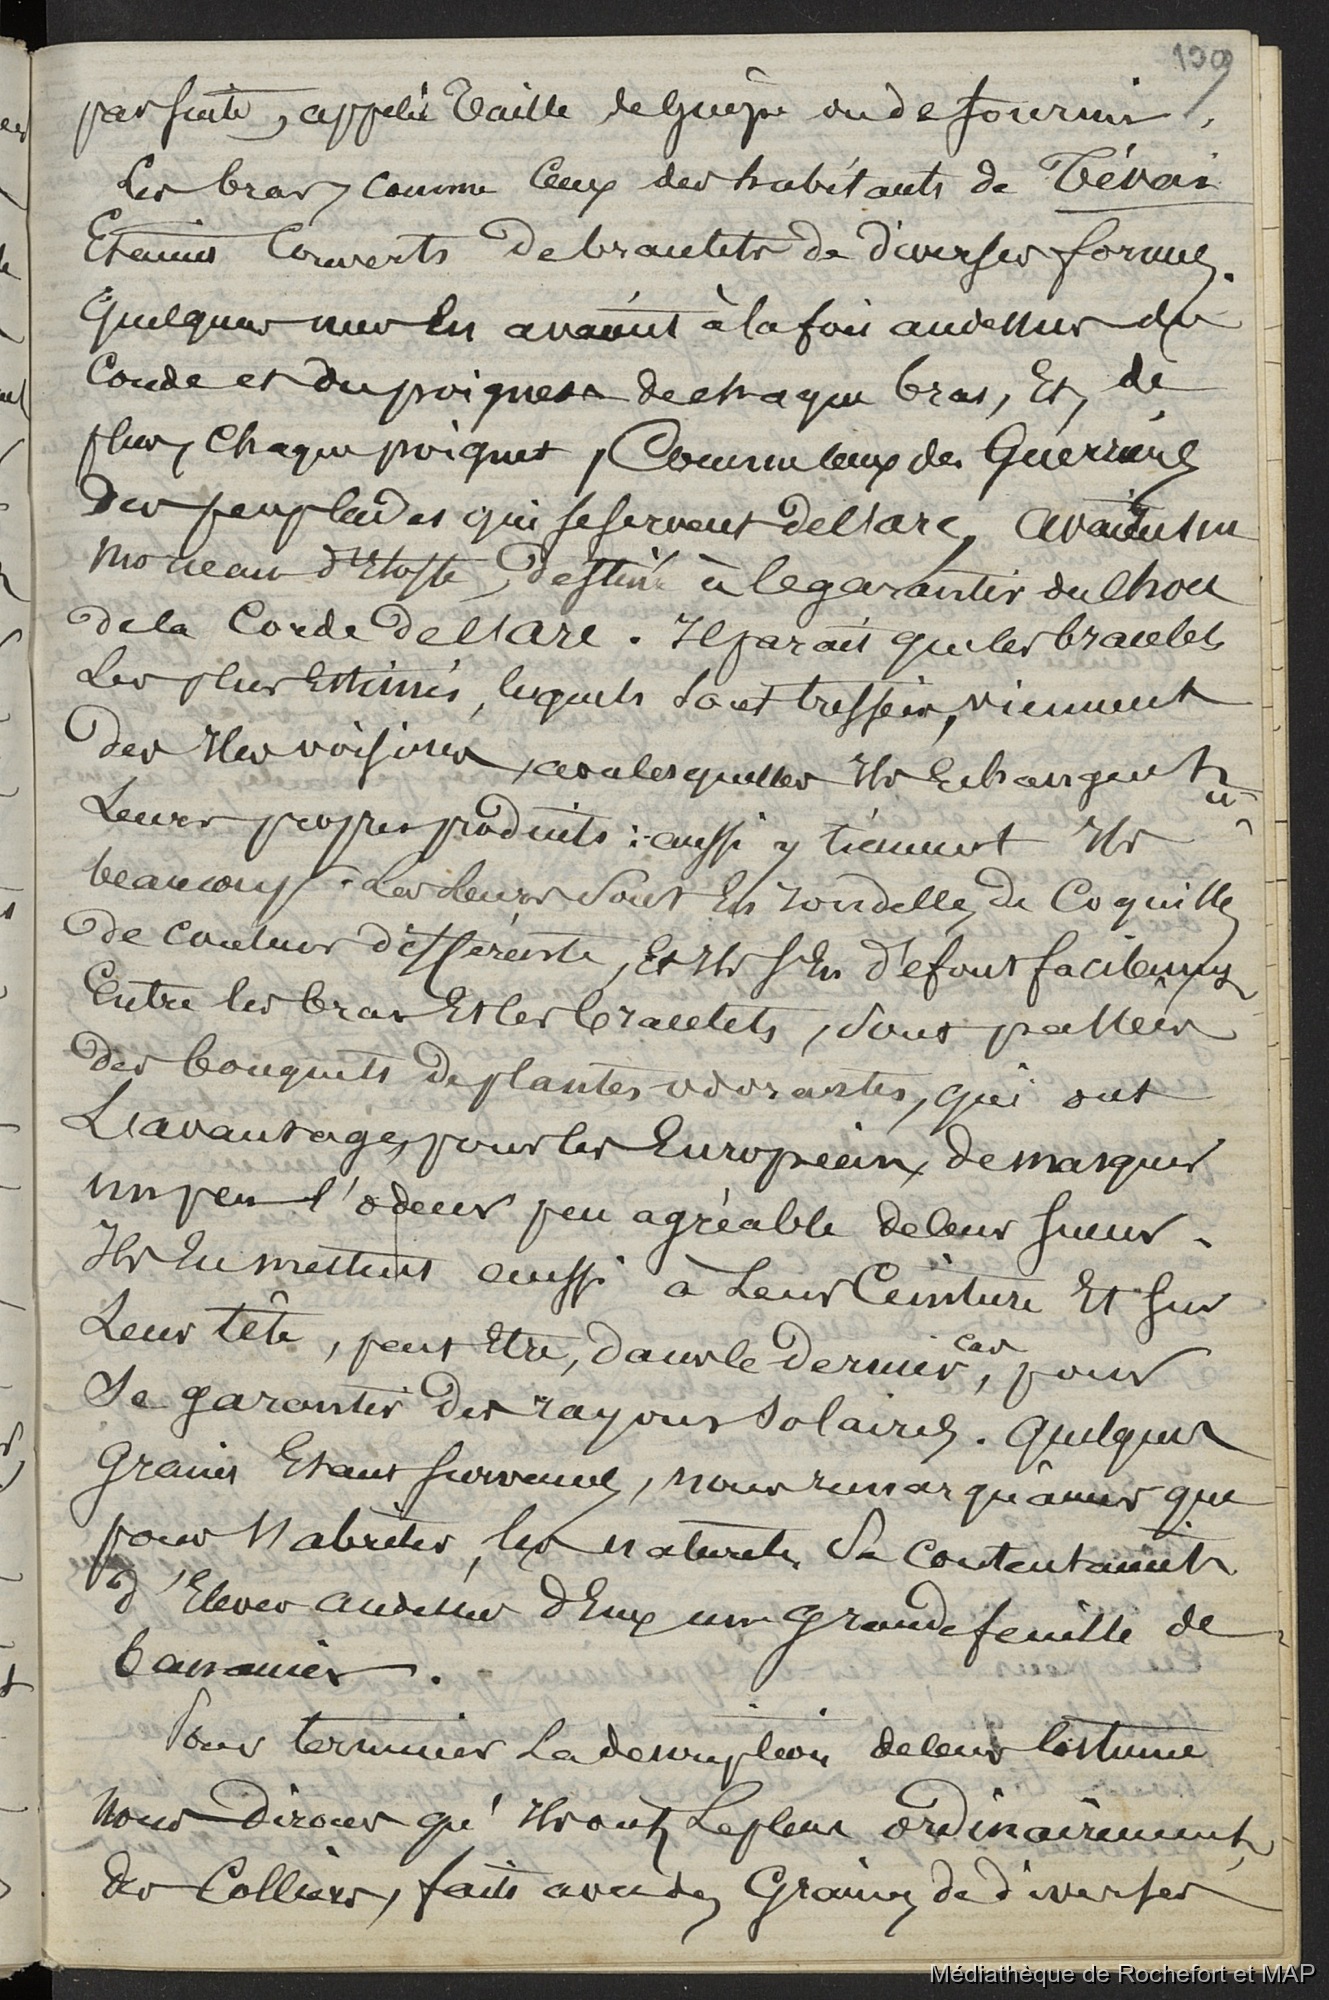 109
parfaite, appelée Taille de Guêpe ou de fourmi.
Les bras, comme Ceux des habitants de Tévai
Etaient Couverts de bracelets de diverses formes.
Quelques uns En avaient à la fois audessus du
Coude et du poignet de chaque bras, Et, de
plus, Chaque poignet, Comme ceux des Guerriers
Des peuplades qui se servent de l'arc, avaient un
morceau d'Etoffe, destiné à le garantir du choc
de la Corde de l'arc. Il parait que les bracelets
Les plus Estimés, lesquels sont tressés, viennent
des Iles voisines, avec lesquelles Ils Echangent
Leurs propres produits : aussi y tiennent Ils
beaucoup. Les Leurs Sont En rondelles de Coquilles
de couleur différente, Et Ils s'En défont facilement
Entre les bras Et les bracelets, Sont passées
des bouquets de plantes odorantes, qui ont
L'avantage, pour les Européens, de masquer
un peu l'odeur peu agréable de leur sueur.
Ils En mettent aussi à Leur Ceinture Et sur
Leur tête, peut Etre, dans le dernier cas, pour
Se garantir des rayons Solaires. Quelques
Grains Etant survenus, nous remarquâmes que
pour s'abriter, les naturels Se Contentaient
d'Elever audessus d'Eux une Grande feuille de
bananier.
Pour terminer La description de leur Costume
Nous dirons qu'Ils ont, Le plus ordinairement,
des Colliers, faits avec des Graines de diverses
Médiathèque de Rochefort et MAP